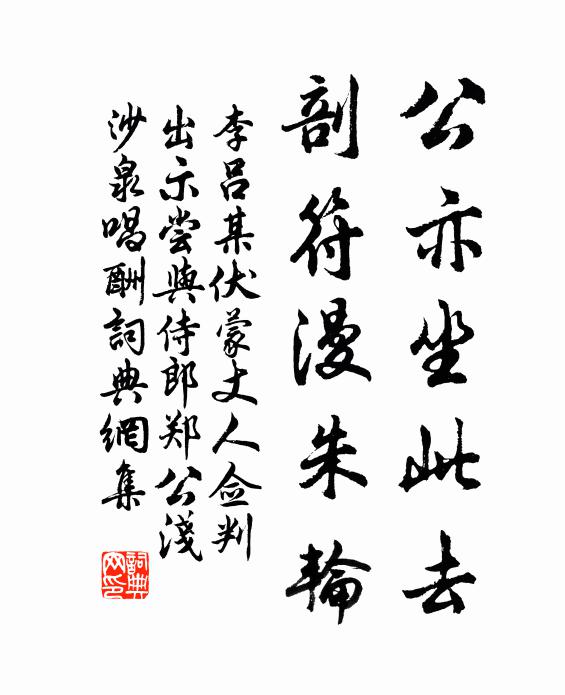 公亦坐此去
剖符漫朱輪
李呂某伏蒙丈人僉判
出示嘗與侍郎郑公淺
沙泉唱酬詞典網集
詞典網印